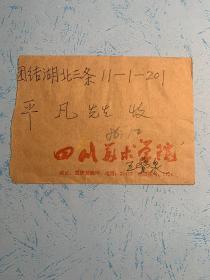 团结湖北三条11-1-201
平凡先生 收
86.12
四川美术学院